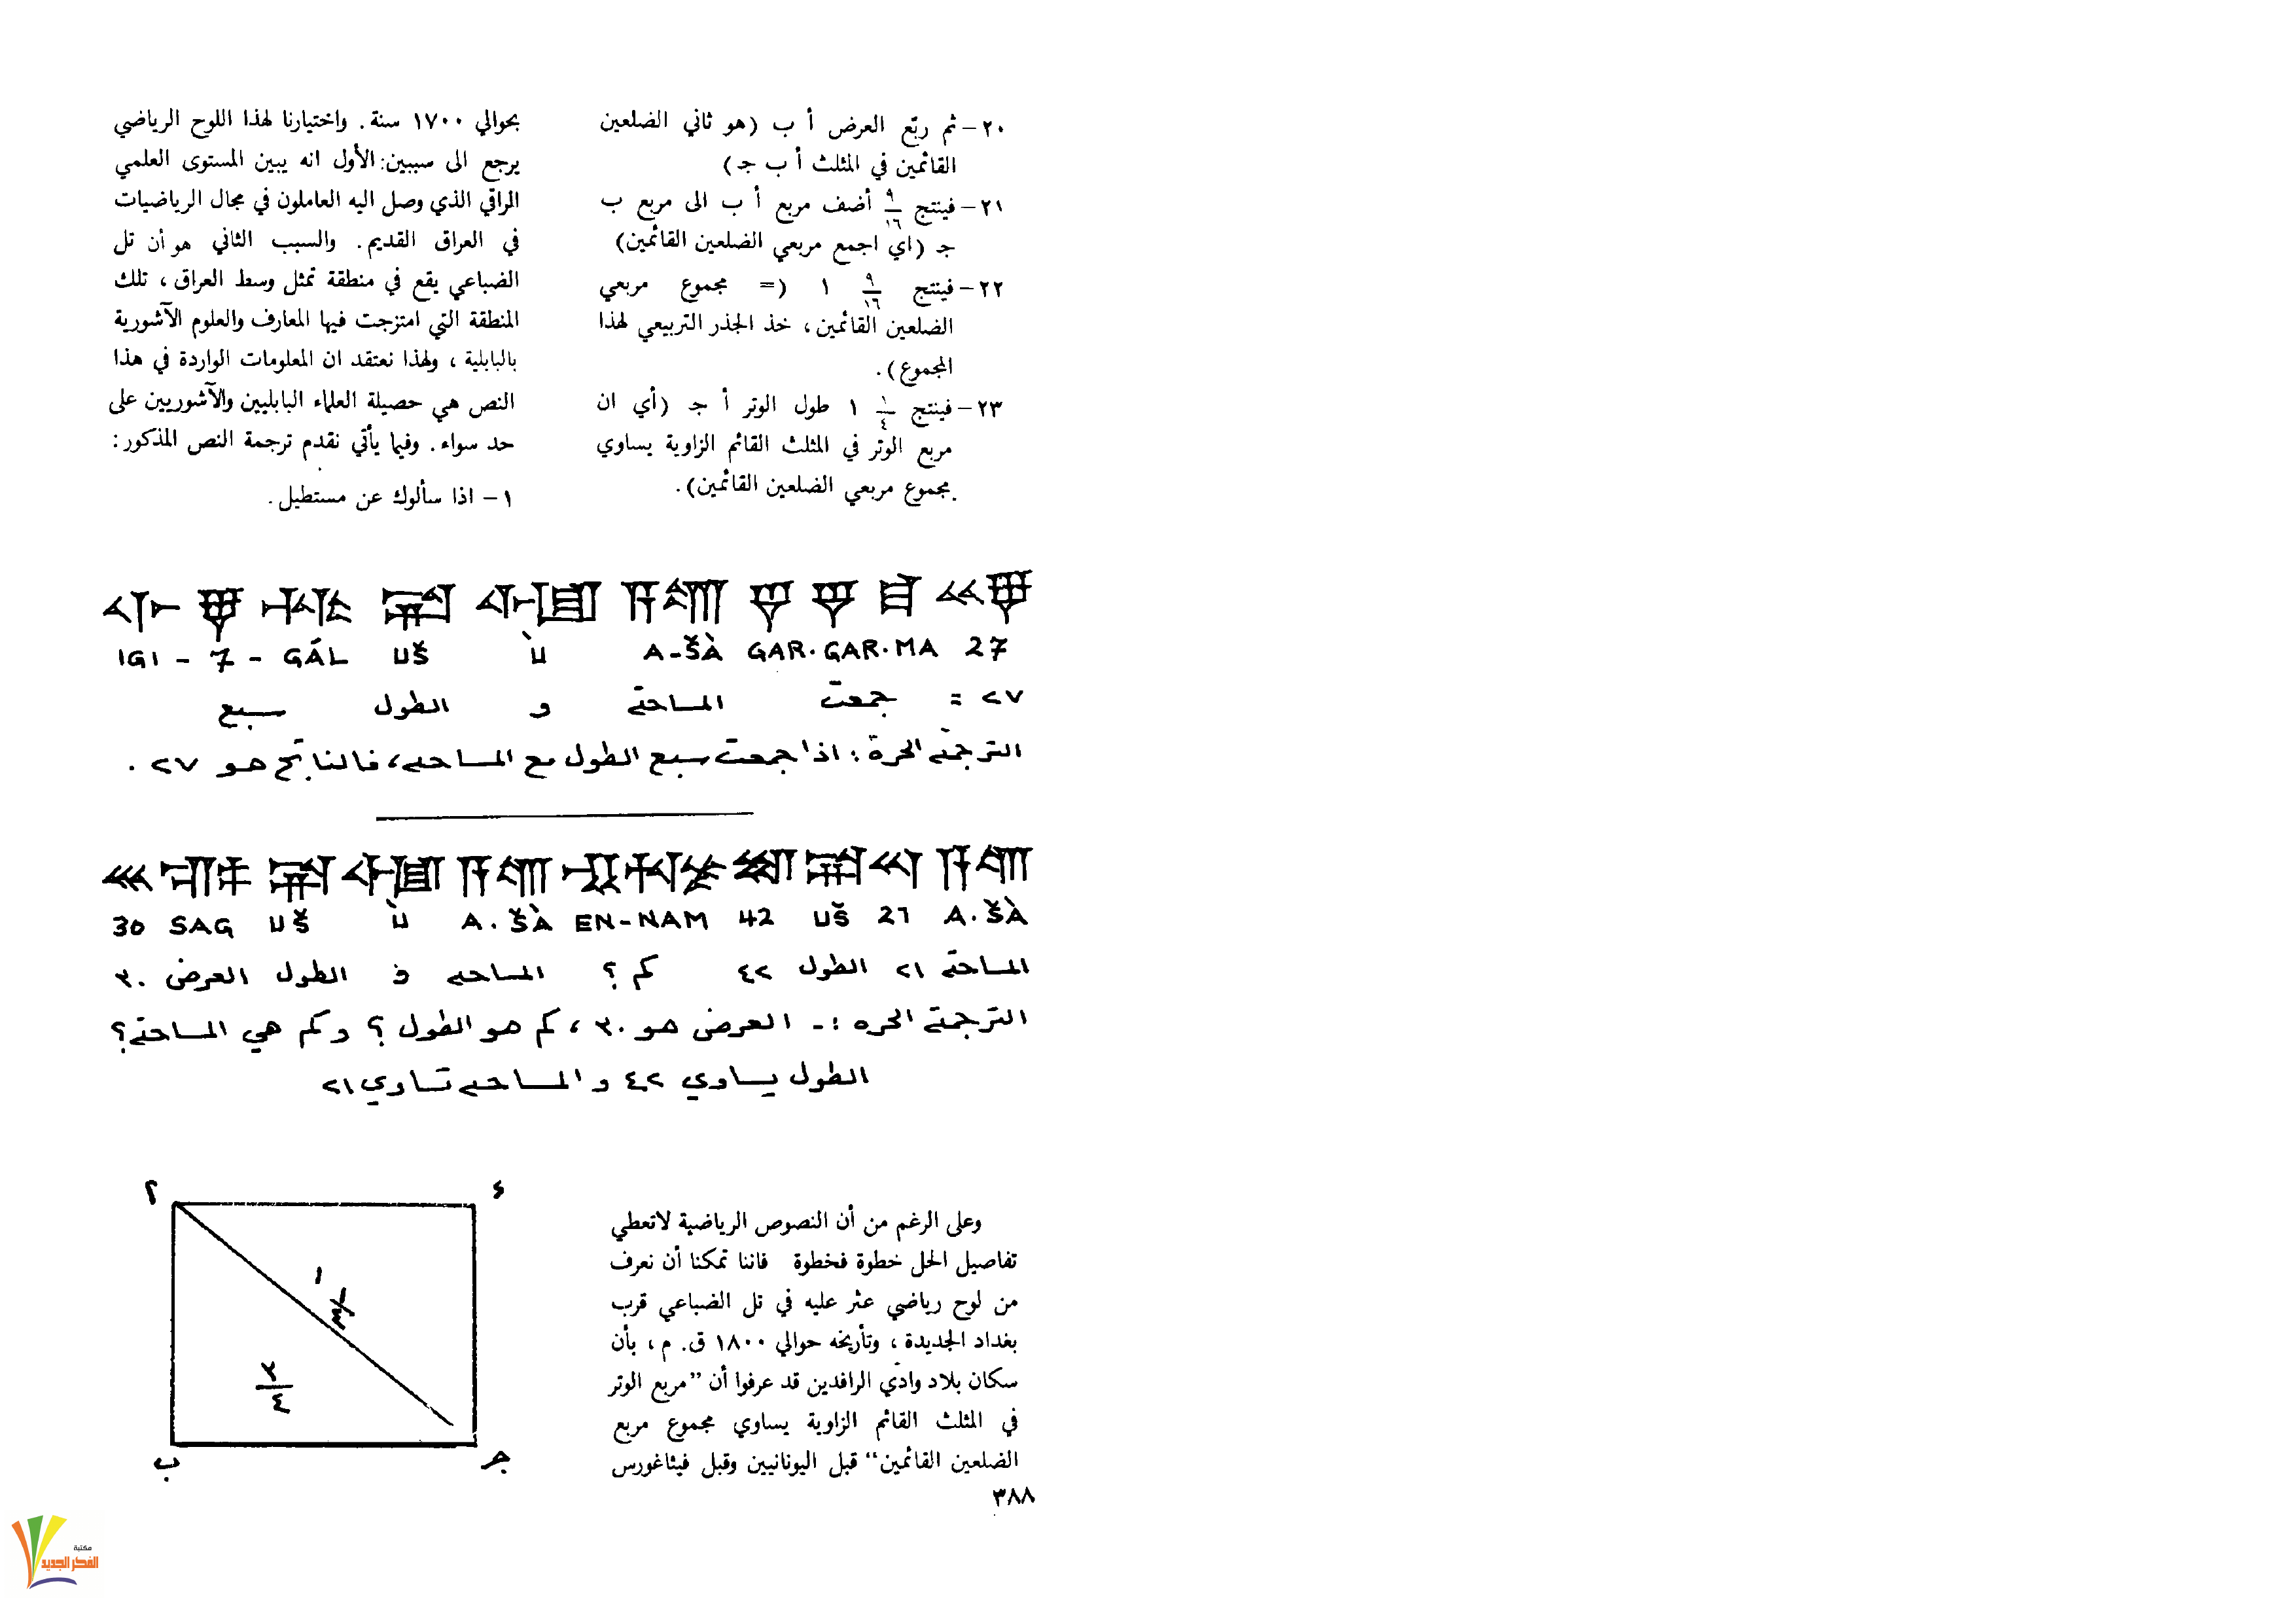 ٢٠– ثم ربّع العرض أ ب (هو ثاني الضلعين
القائمين في المثلث أ ب جـ)
٢١– فينتج ٩/١٦ أضف مربع أ ب الى مربع ب
جـ (اي اجمع مربعي الضلعين القائمين)
٢٢– فينتج ٩/١٦ ١ (= مجموع مربعي
الضلعين القائمين، خذ الجذر التربيعي لهذا
المجموع).
٢٣– فينتج ١/٤ ١ طول الوتر أ جـ (أي ان
مربع الوتر في المثلث القائم الزاوية يساوي
مجموع مربعي الضلعين القائمين).
بحوالي ١٧٠٠ سنة. واختيارنا لهذا اللوح الرياضي
يرجع الى سببين: الأول انه يبين المستوى العلمي
الراقي الذي وصل اليه العاملون في مجال الرياضيات
في العراق القديم. والسبب الثاني هو أن تل
الضباعي يقع في منطقة تمثل وسط العراق، تلك
المنطقة التي امتزجت فيها المعارف والعلوم الآشورية
بالبابلية، ولهذا نعتقد ان المعلومات الواردة في هذا
النص هي حصيلة العلماء البابليين والآشوريين على
حد سواء. وفيما يأتي نقدم ترجمة النص المذكور:
١– اذا سألوك عن مستطيل.
IGI – 7 – GÁL UŠ Ù A-ŠÀ GAR·GAR·MA 27
٢٧ = جمعت المساحة و الطول سبع
الترجمة الحرة: اذا جمعت سبع الطول مع المساحة، فالناتج هو ٢٧.
30 SAG UŠ Ù A.ŠÀ EN-NAM 42 UŠ 21 A.ŠÀ
المساحة ٢١ الطول ٤٢ كم؟ المساحه و الطول العرض ٣٠
الترجمة الحره :- العرض هو ٣٠، كم هو الطول؟ وكم هي المساحة؟
الطول يساوي ٤٢ والمساحه تساوي ٢١
وعلى الرغم من أن النصوص الرياضية لاتعطي
تفاصيل الحل خطوة فخطوة فاننا تمكنا أن نعرف
من لوح رياضي عثر عليه في تل الضباعي قرب
بغداد الجديدة، وتأريخه حوالي ١٨٠٠ ق. م، بأن
سكان بلاد وادي الرافدين قد عرفوا أن ”مربع الوتر
في المثلث القائم الزاوية يساوي مجموع مربع
الضلعين القائمين“ قبل اليونانيين وقبل فيثاغورس
أ
د
١ ١/٤
٣/٤
ب
جـ
٣٨٨
مكتبة
الفكر الجديد